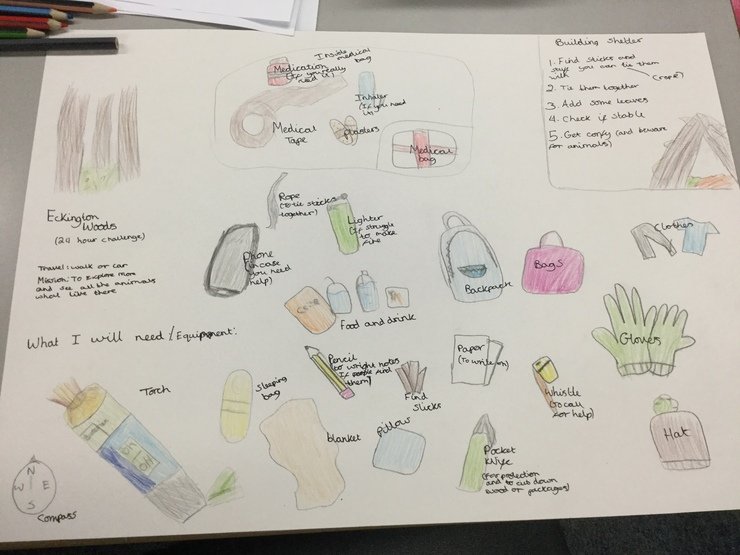 Inside medical bag
Medication
(If you really
need it)
Inhaler
(If you need
it)
Medical
Tape
plasters
Medical
bag
Building shelter
1. Find sticks and
you can tie them
with (rope)
2. Tie them together
3. Add some leaves
4. Check if stable
5. Get comfy (and beware
for animals)
Eckington
Woods
(24 hour challenge)
Travel: walk or car
Mission: To explore more
and see all the animals
what live there
What I will need/Equipment:
Rope
(To tie sticks
together)
Lighter
(if struggle
to make
fire)
Phone
(in case
you need
help)
Food and drink
Backpack
Bags
Clothes
Gloves
Torch
ON
Sleeping
bag
Pencil
(to wright notes
if people find
them)
Paper
(To write on)
Find
Sticks
Whistle
(To call
for help)
blanket
pillow
Pocket
Knife
(For protection
and to cut down
wood or packages)
Hat
N
W E
S
Compass